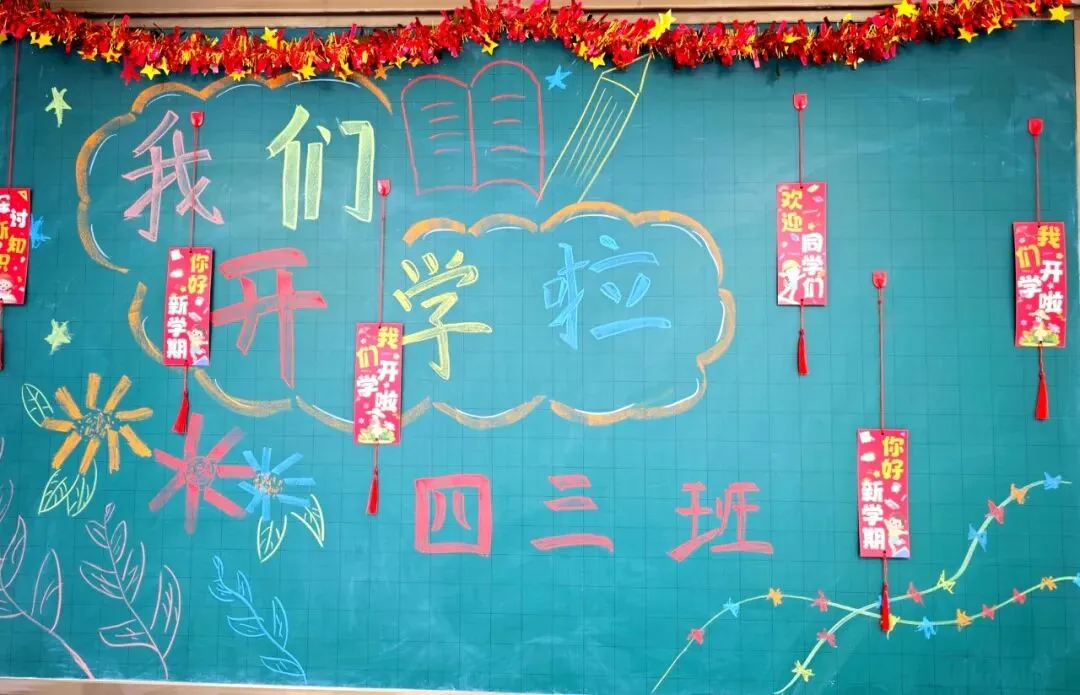 我们
开学啦
四三班
讨
知识
你好
新学期
我们
开学啦
欢迎
同学们
你好
新学期
我们
开学啦